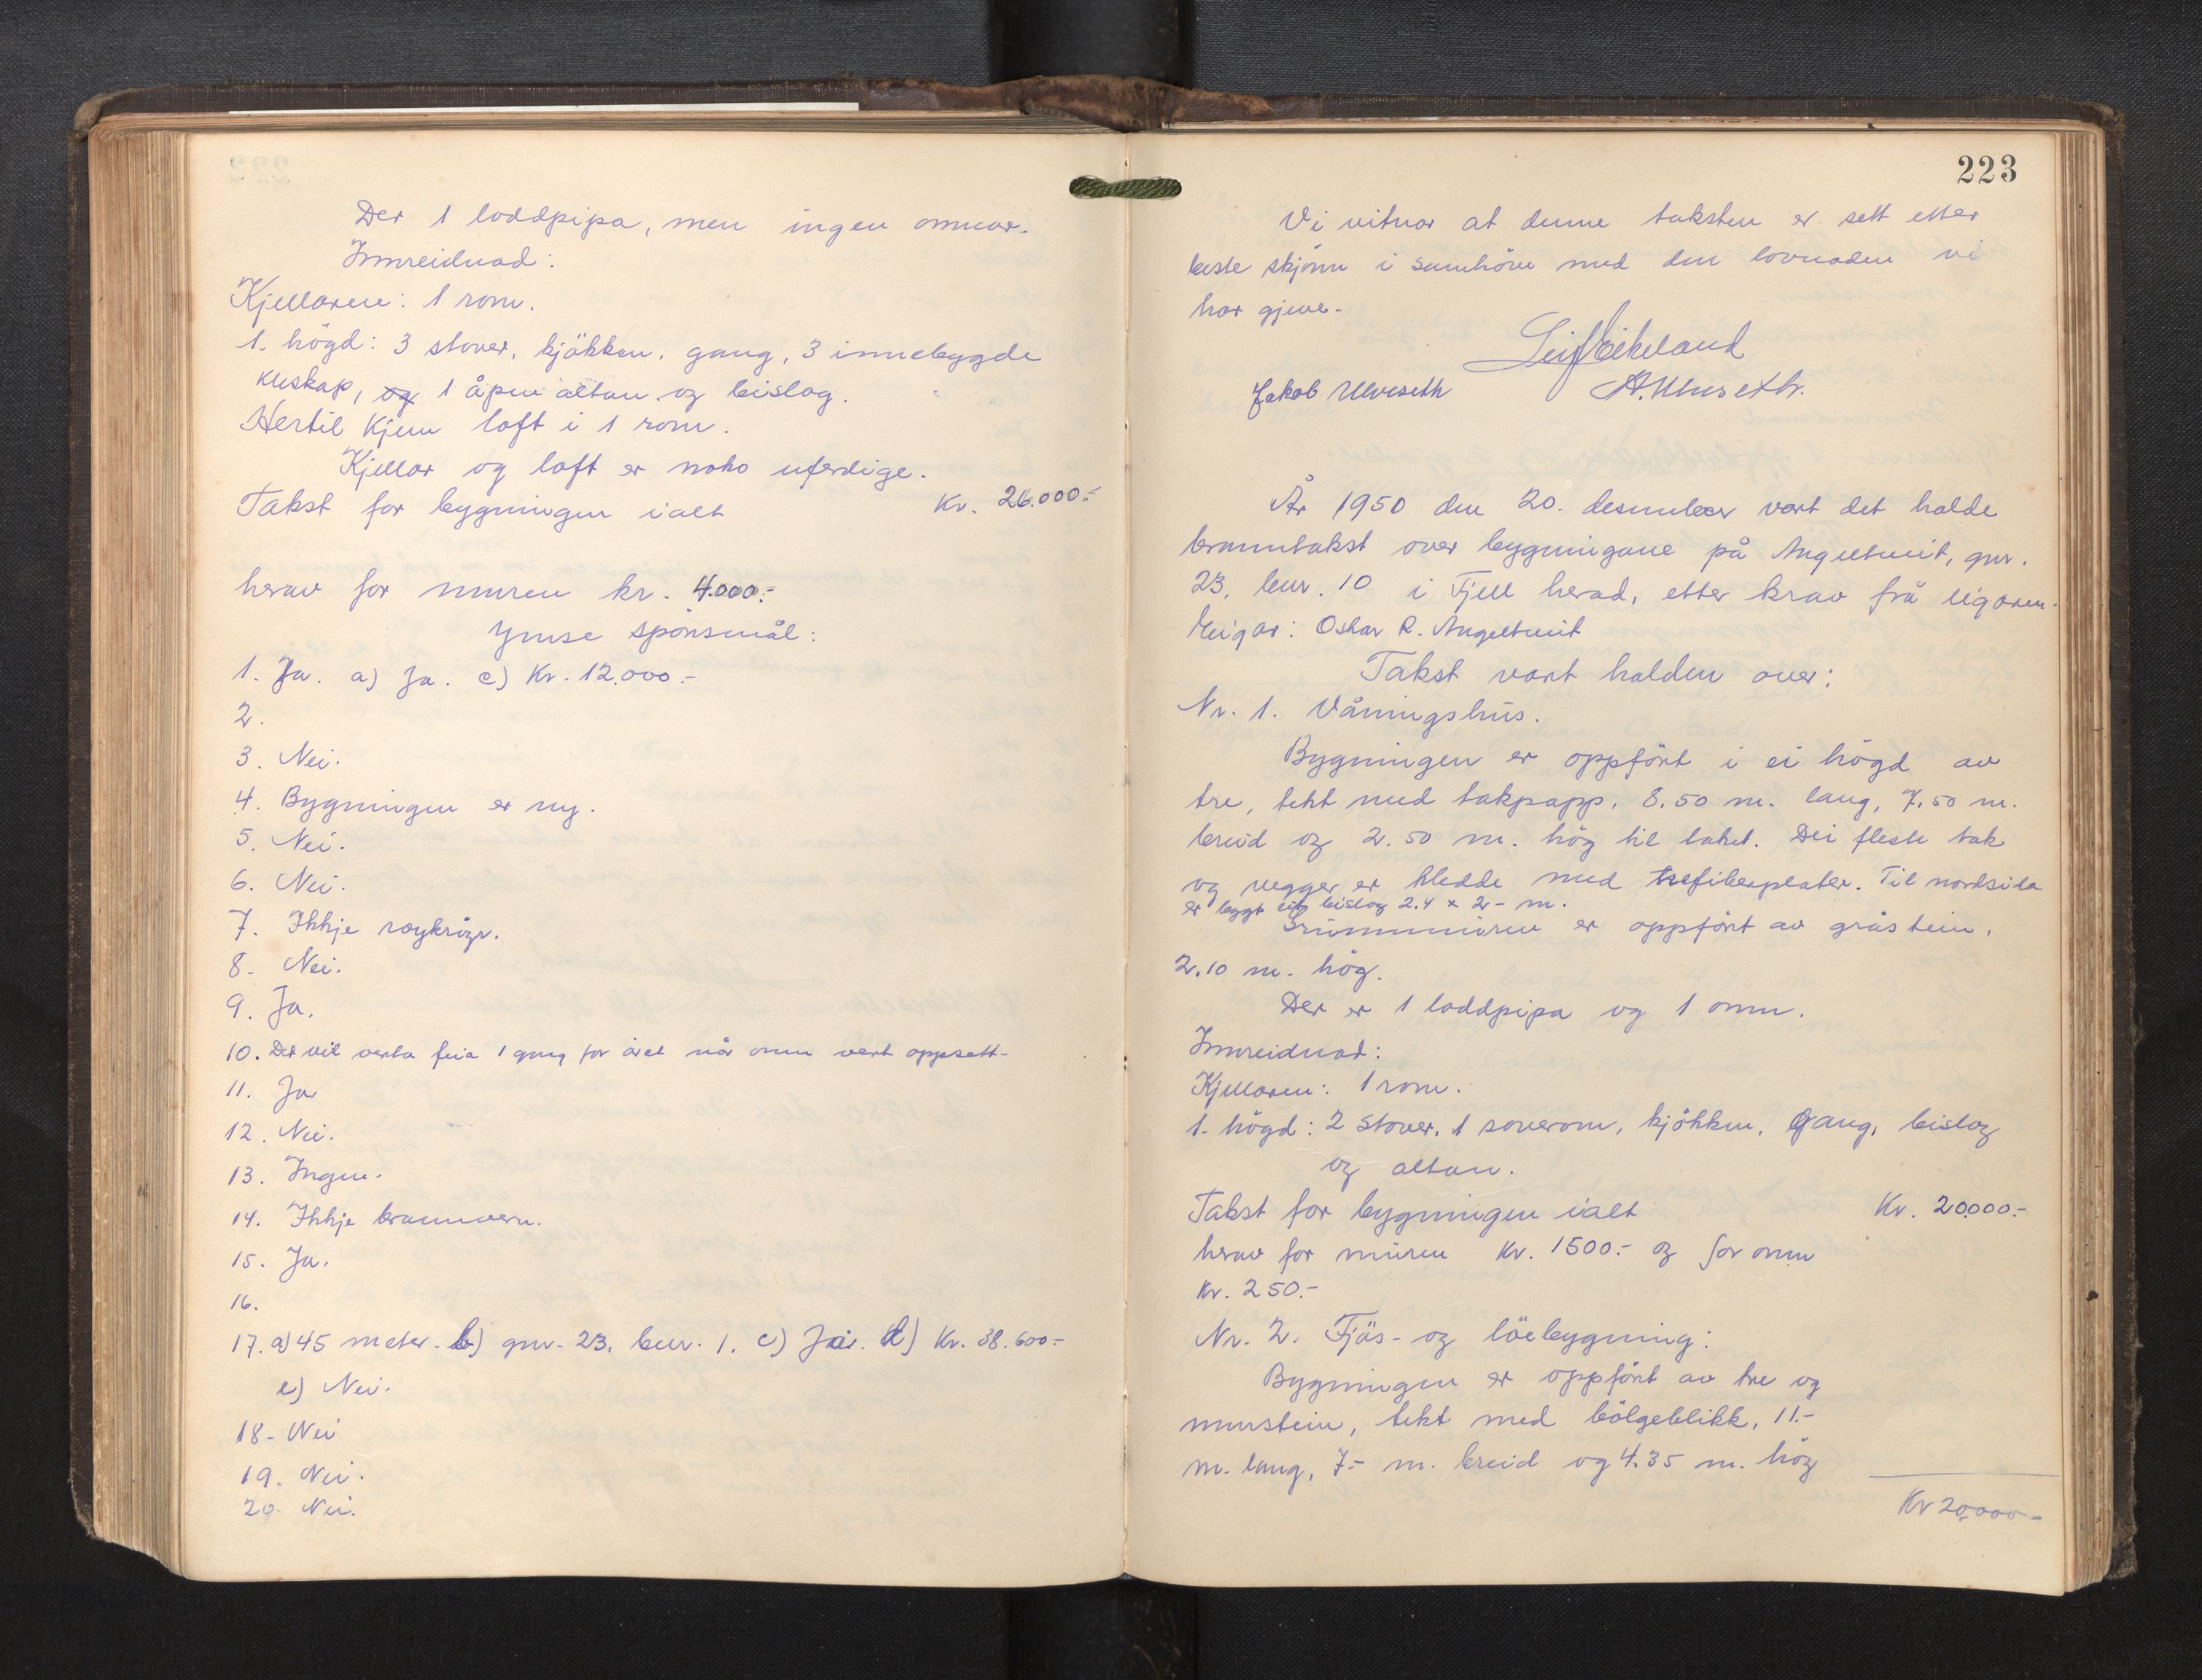 Der 1 loddpipa, men ingen omnar.
Innreidnad:
Kjellaren: 1 rom.
1. högd: 3 stover, kjökken, gang, 3 innebygde
kleskap, og 1 åpen altan og bislag.
Hertil kjem loft i 1 rom.
Kjellar og loft er noko uferdige.
Takst for bygningen ialt Kr. 26.000.-
herav for muren kr. 4.000.-
Ymse spörsmål:
1. Ja. a) Ja. c) Kr. 12.000.-
2.
3. Nei.
4. Bygningen er ny.
5. Nei.
6. Nei.
7. Ikkje
8. Nei.
9. Ja.
10. Det vil verta feia 1 gang for året når omn vert oppsett.
11. Ja
12. Nei.
13. Ingen.
14. Ikkje brannvern.
15. Ja.
16.
17. a) 45 meter. b) gnr. 23, bnr. 1. c) d) Kr. 38.600.-
e) Nei.
18. Nei
19. Nei.
20. Nei.
223
Vi vitnar at denne taksten er sett etter
beste skjönn i samhöve med den lovnaden vi
har gjeve.
Leif Eikeland
Jakob Ulveseth A. Ulveseth.
År 1950 den 20. desember vart det halde
branntakst over bygningane på Angeltveit, gnr.
23, bnr. 10 i Fjell herad, etter krav frå eigaren.
Eigar: Oskar R. Angeltveit
Takst vart halden over:
Nr. 1. Våningshus.
Bygningen er oppfört i ei högd av
tre, tekt med takpapp, 8.50 m. lang, 7.50 m.
breid og 2.50 m. hög til taket. Dei fleste tak
og vegger er kledde med trefiberplater. Til nordsida
er bygt eit bislag 2.4 x 2.- m.
Grunnmuren er oppfört av gråstein,
2.10 m. hög.
Der er 1 loddpipa og 1 omn.
Innreidnad:
Kjellaren: 1 rom.
1. högd: 2 stover, 1 soverom, kjökken, gang, bislag
og altan.
Takst for bygningen ialt Kr. 20.000.-
herav for muren Kr. 1500.- og for omn
Kr. 250.-
Nr. 2. Fjös- og löebygning:
Bygningen er oppfört av tre og
murstein, tekt med bölgeblikk, 11.-
m. lang, 7.- m. breid og 4.35 m. hög
Kr 20.000.-